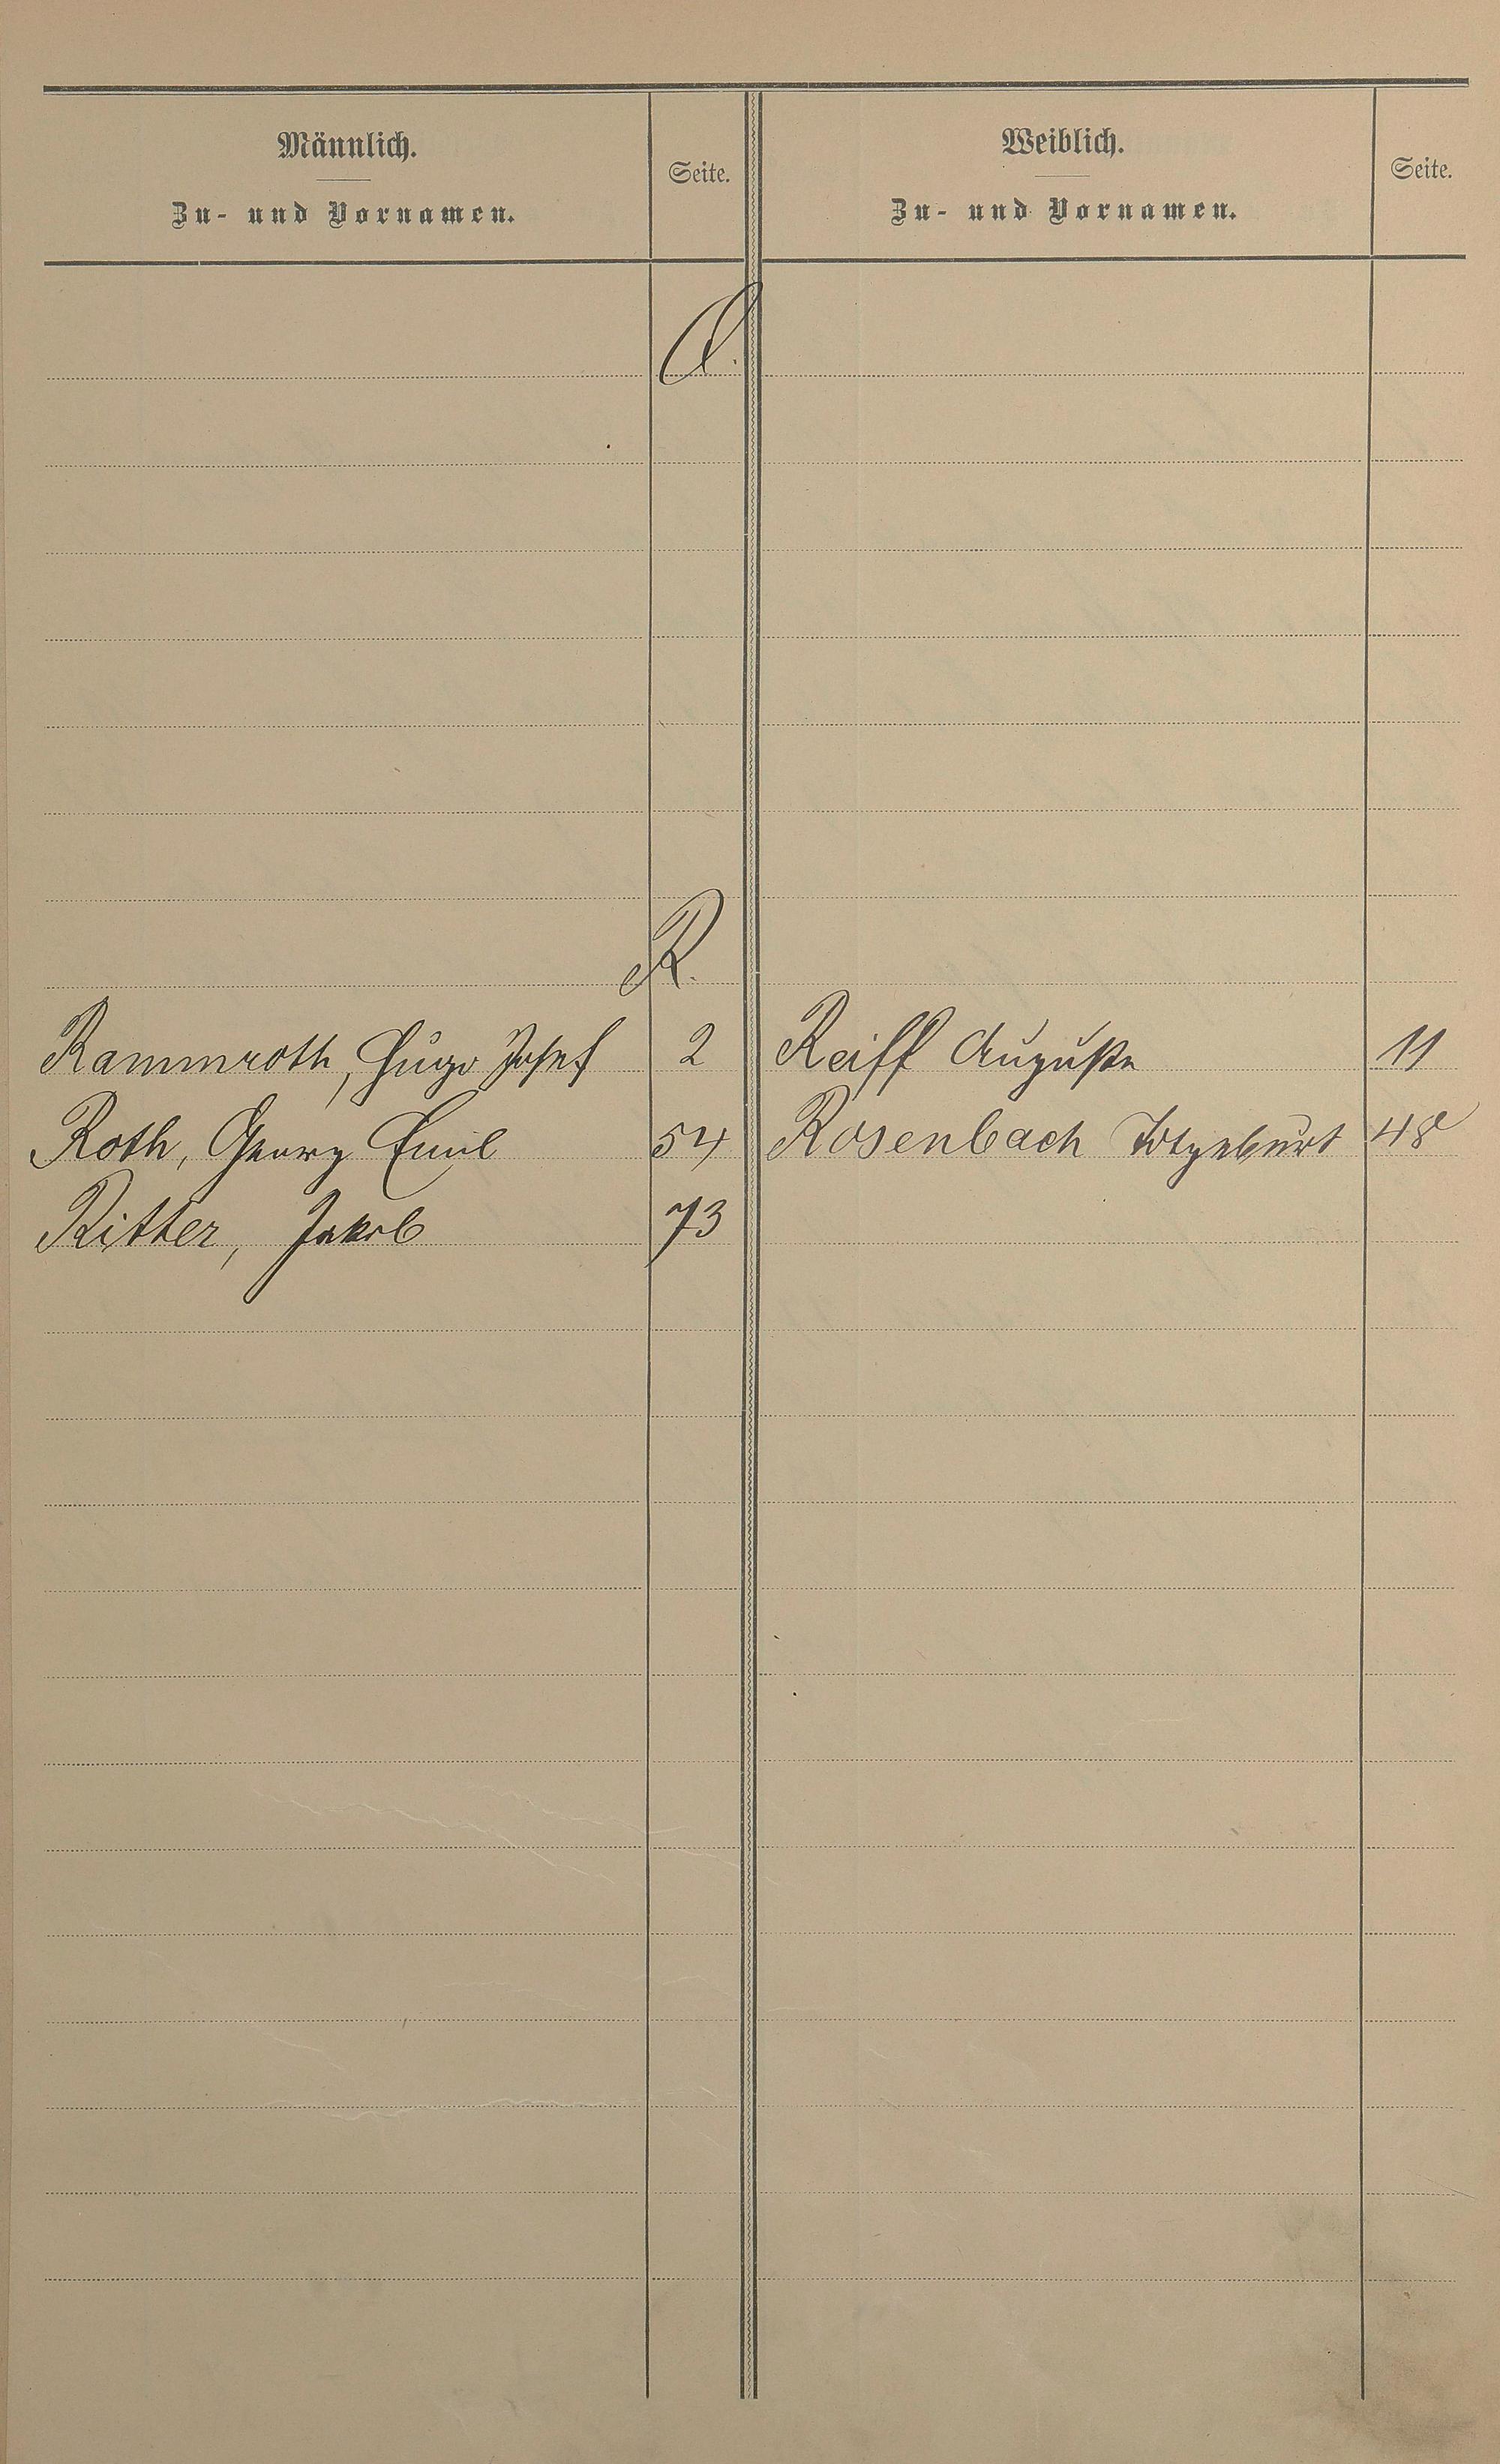 Männlich.
Zu- und Vornamen.
Seite.
Weiblich.
Zu- und Vornamen.
Seite.
Q.
R.
Rammroth, Hugo Josef 2 Reiff Auguste 11
Roth, Georg Emil 54 Rosenbach Totgeburt 48
Ritter, Jakob 73